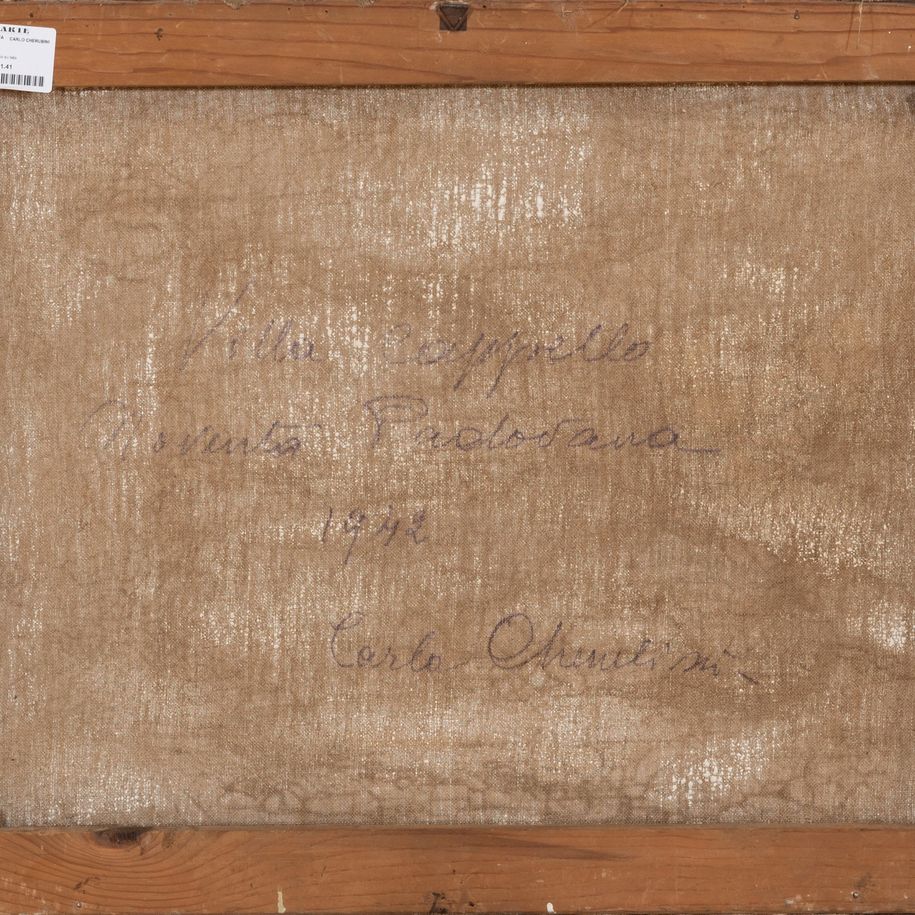 ARTE
CARLO CHERUBINI
1.41
Villa Cappello
Noventa Padovana
1942
Carlo Cherubini